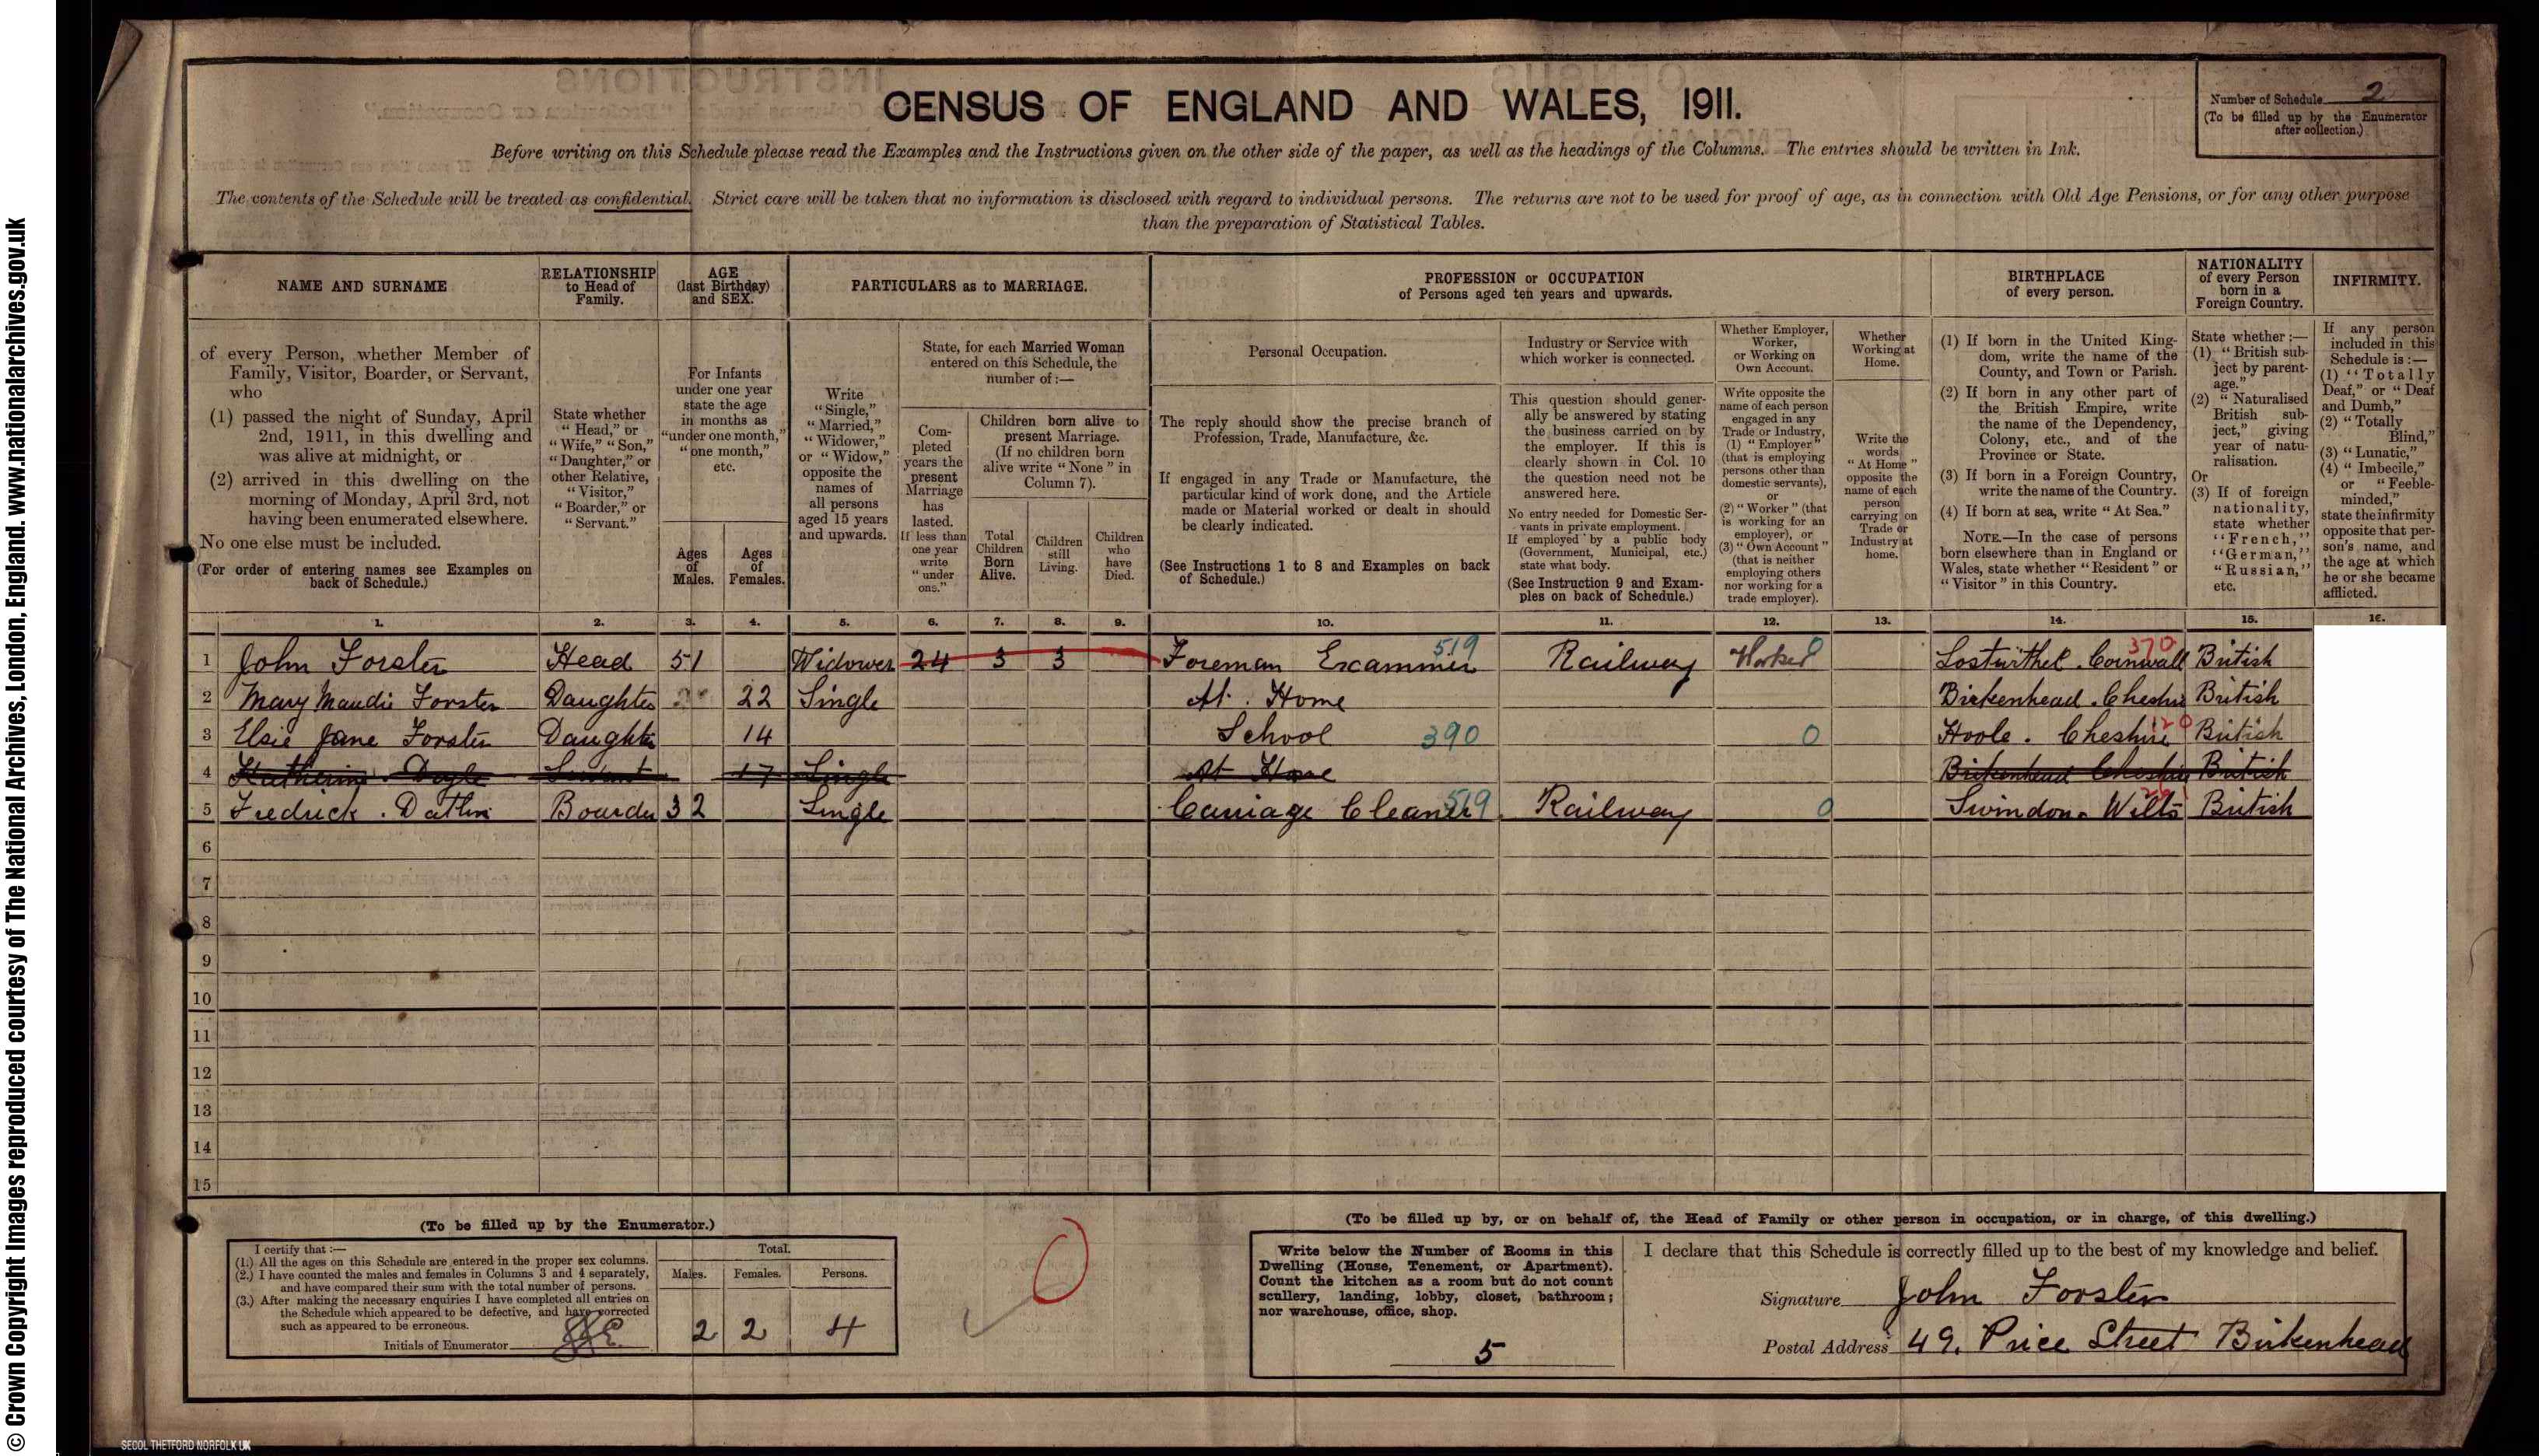 © Crown Copyright Images reproduced courtesy of The National Archives, London, England. www.nationalarchives.gov.uk
CENSUS OF ENGLAND AND WALES, 1911.
Number of Schedule 2
(To be filled up by the Enumerator
after collection.)
Before writing on this Schedule please read the Examples and the Instructions given on the other side of the paper, as well as the headings of the Columns. The entries should be written in Ink.
The contents of the Schedule will be treated as confidential. Strict care will be taken that no information is disclosed with regard to individual persons. The returns are not to be used for proof of age, as in connection with Old Age Pensions, or for any other purpose
than the preparation of Statistical Tables.
NAME AND SURNAME
of every Person, whether Member of
Family, Visitor, Boarder, or Servant,
who
(1) passed the night of Sunday, April
2nd, 1911, in this dwelling and
was alive at midnight, or
(2) arrived in this dwelling on the
morning of Monday, April 3rd, not
having been enumerated elsewhere.
No one else must be included.
(For order of entering names see Examples on
back of Schedule.)
RELATIONSHIP
to Head of
Family.
State whether
"Head," or
"Wife," "Son,"
"Daughter," or
other Relative,
"Visitor,"
"Boarder," or
"Servant."
AGE
(last Birthday)
and SEX.
For Infants
under one year
state the age
in months as
"under one month,"
"one month,"
etc.
Ages
of
Males.
Ages
of
Females.
PARTICULARS as to MARRIAGE.
Write
"Single,"
"Married,"
"Widower,"
or "Widow,"
opposite the
names of
all persons
aged 15 years
and upwards.
State, for each Married Woman
entered on this Schedule, the
number of :—
Com-
pleted
years the
present
Marriage
has
lasted.
If less than
one year
write
"under
one."
Children born alive to
present Marriage.
(If no children born
alive write "None" in
Column 7).
Total
Children
Born
Alive.
Children
still
Living.
Children
who
have
Died.
PROFESSION or OCCUPATION
of Persons aged ten years and upwards.
Personal Occupation.
The reply should show the precise branch of
Profession, Trade, Manufacture, &c.
If engaged in any Trade or Manufacture, the
particular kind of work done, and the Article
made or Material worked or dealt in should
be clearly indicated.
(See Instructions 1 to 8 and Examples on back
of Schedule.)
Industry or Service with
which worker is connected.
This question should gener-
ally be answered by stating
the business carried on by
the employer. If this is
clearly shown in Col. 10
the question need not be
answered here.
No entry needed for Domestic Ser-
vants in private employment.
If employed by a public body
(Government, Municipal, etc.)
state what body.
(See Instruction 9 and Exam-
ples on back of Schedule.)
Whether Employer,
Worker,
or Working on
Own Account.
Write opposite the
name of each person
engaged in any
Trade or Industry,
(1) "Employer"
(that is employing
persons other than
domestic servants),
or
(2) "Worker" (that
is working for an
employer), or
(3) "Own Account"
(that is neither
employing others
nor working for a
trade employer).
Whether
Working at
Home.
Write the
words
"At Home"
opposite the
name of each
person
carrying on
Trade or
Industry at
home.
BIRTHPLACE
of every person.
(1) If born in the United King-
dom, write the name of the
County, and Town or Parish.
(2) If born in any other part of
the British Empire, write
the name of the Dependency,
Colony, etc., and of the
Province or State.
(3) If born in a Foreign Country,
write the name of the Country.
(4) If born at sea, write "At Sea."
NOTE.—In the case of persons
born elsewhere than in England or
Wales, state whether "Resident" or
"Visitor" in this Country.
NATIONALITY
of every Person
born in a
Foreign Country.
State whether :—
(1) "British sub-
ject by parent-
age."
(2) "Naturalised
British sub-
ject," giving
year of natu-
ralisation.
Or
(3) If of foreign
nationality,
state whether
"French,"
"German,"
"Russian,"
etc.
INFIRMITY.
If any person
included in this
Schedule is :—
(1) "Totally
Deaf," or "Deaf
and Dumb,"
(2) "Totally
Blind,"
(3) "Lunatic,"
(4) "Imbecile,"
or "Feeble-
minded,"
state the infirmity
opposite that per-
son's name, and
the age at which
he or she became
afflicted.
1. 2. 3. 4. 5. 6. 7. 8. 9. 10. 11. 12. 13. 14. 15. 16.
1 John Forster Head 51 Widower 24 3 3 Foreman Examiner 519 Railway Worker 0 Lostwithel. Cornwall 370 British
2 Mary Maudie Forster Daughter 22 Single At. Home Birkenhead. Cheshire British
3 Elsie Jane Forster Daughter 14 School 390 0 Hoole. Cheshire 120 British
4 Katherine Doyle Servant 17 Single At Home Birkenhead Cheshire British
5 Fredrick. Boarder 32 Single Carriage Cleaner 519 Railway 0 Swindon. Wilts British
6
7
8
9
10
11
12
13
14
15
(To be filled up by the Enumerator.)
I certify that :—
(1.) All the ages on this Schedule are entered in the proper sex columns.
(2.) I have counted the males and females in Columns 3 and 4 separately,
and have compared their sum with the total number of persons.
(3.) After making the necessary enquiries I have completed all entries on
the Schedule which appeared to be defective, and have corrected
such as appeared to be erroneous.
Initials of Enumerator
Total.
Males. Females. Persons.
2 2 4
(To be filled up by, or on behalf of, the Head of Family or other person in occupation, or in charge, of this dwelling.)
Write below the Number of Rooms in this
Dwelling (House, Tenement, or Apartment).
Count the kitchen as a room but do not count
scullery, landing, lobby, closet, bathroom;
nor warehouse, office, shop.
5
I declare that this Schedule is correctly filled up to the best of my knowledge and belief.
Signature John Forster
Postal Address 49, Price Street Birkenhead
SECOL THETFORD NORFOLK UK